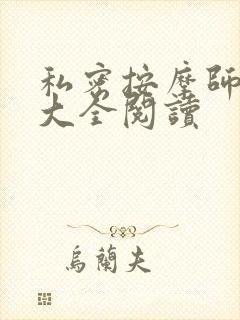 私密按摩師
大全閱讀
烏蘭夫